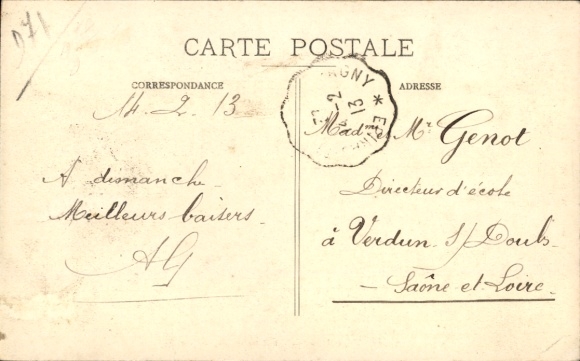 D71
CARTE POSTALE
CORRESPONDANCE
ADRESSE
14. 2. 13
A dimanche
Meilleurs baisers.
AG
AGNY *
13
Mad et Mr Genot
Directeur d'école
à Verdun S/ Doubs
- Saône et Loire -